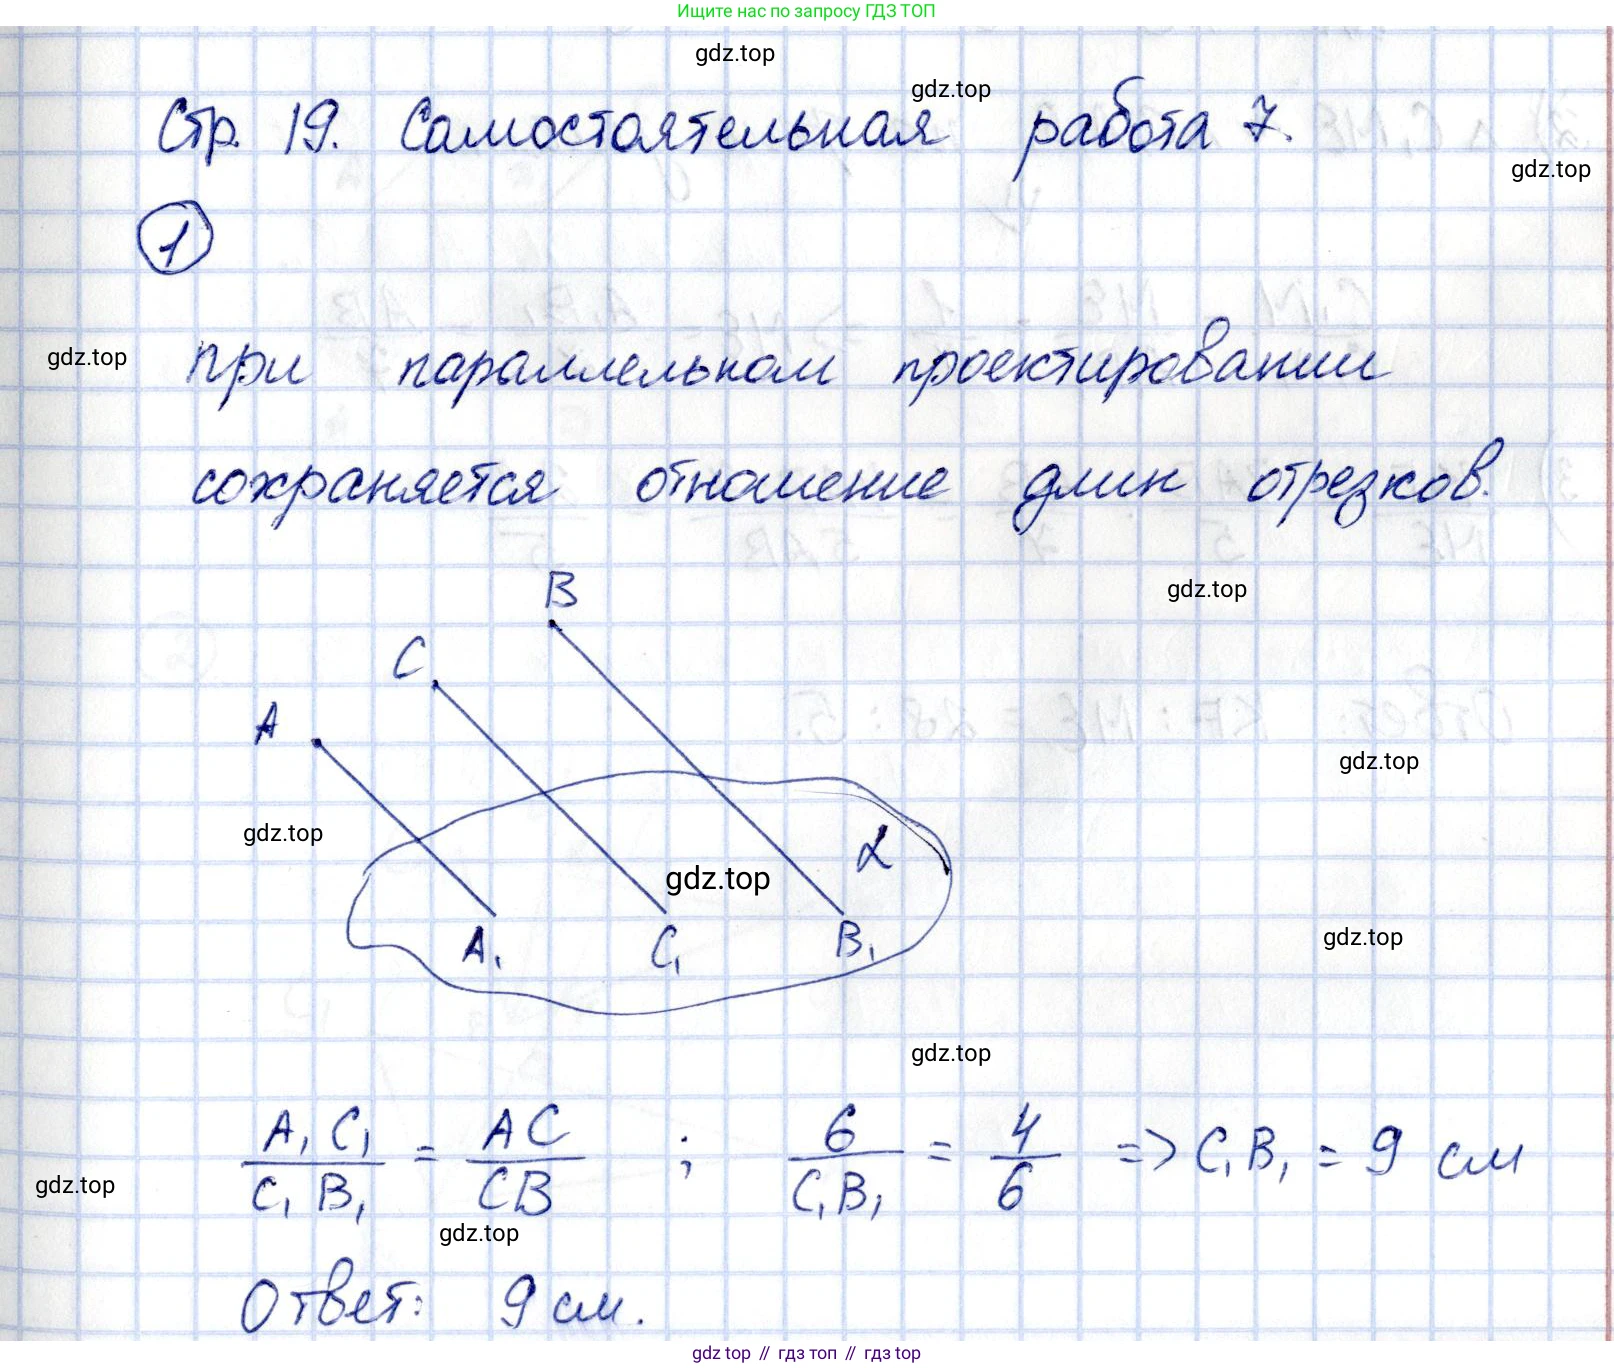 Ищите нас по запросу ГДЗ ТОП
gdz.top
gdz.top
Стр. 19. Самостоятельная работа 7.
gdz.top
1
gdz.top
при параллельном проектировании
сохраняется отношение длин отрезков.
B
gdz.top
C
A
gdz.top
gdz.top
α
gdz.top
A₁ C₁ B₁
gdz.top
gdz.top
A₁C₁/C₁B₁ = AC/CB ; 6/C₁B₁ = 4/6 => C₁B₁ = 9 см
gdz.top
gdz.top
Ответ: 9 см.
gdz top // гдз топ // гдз top